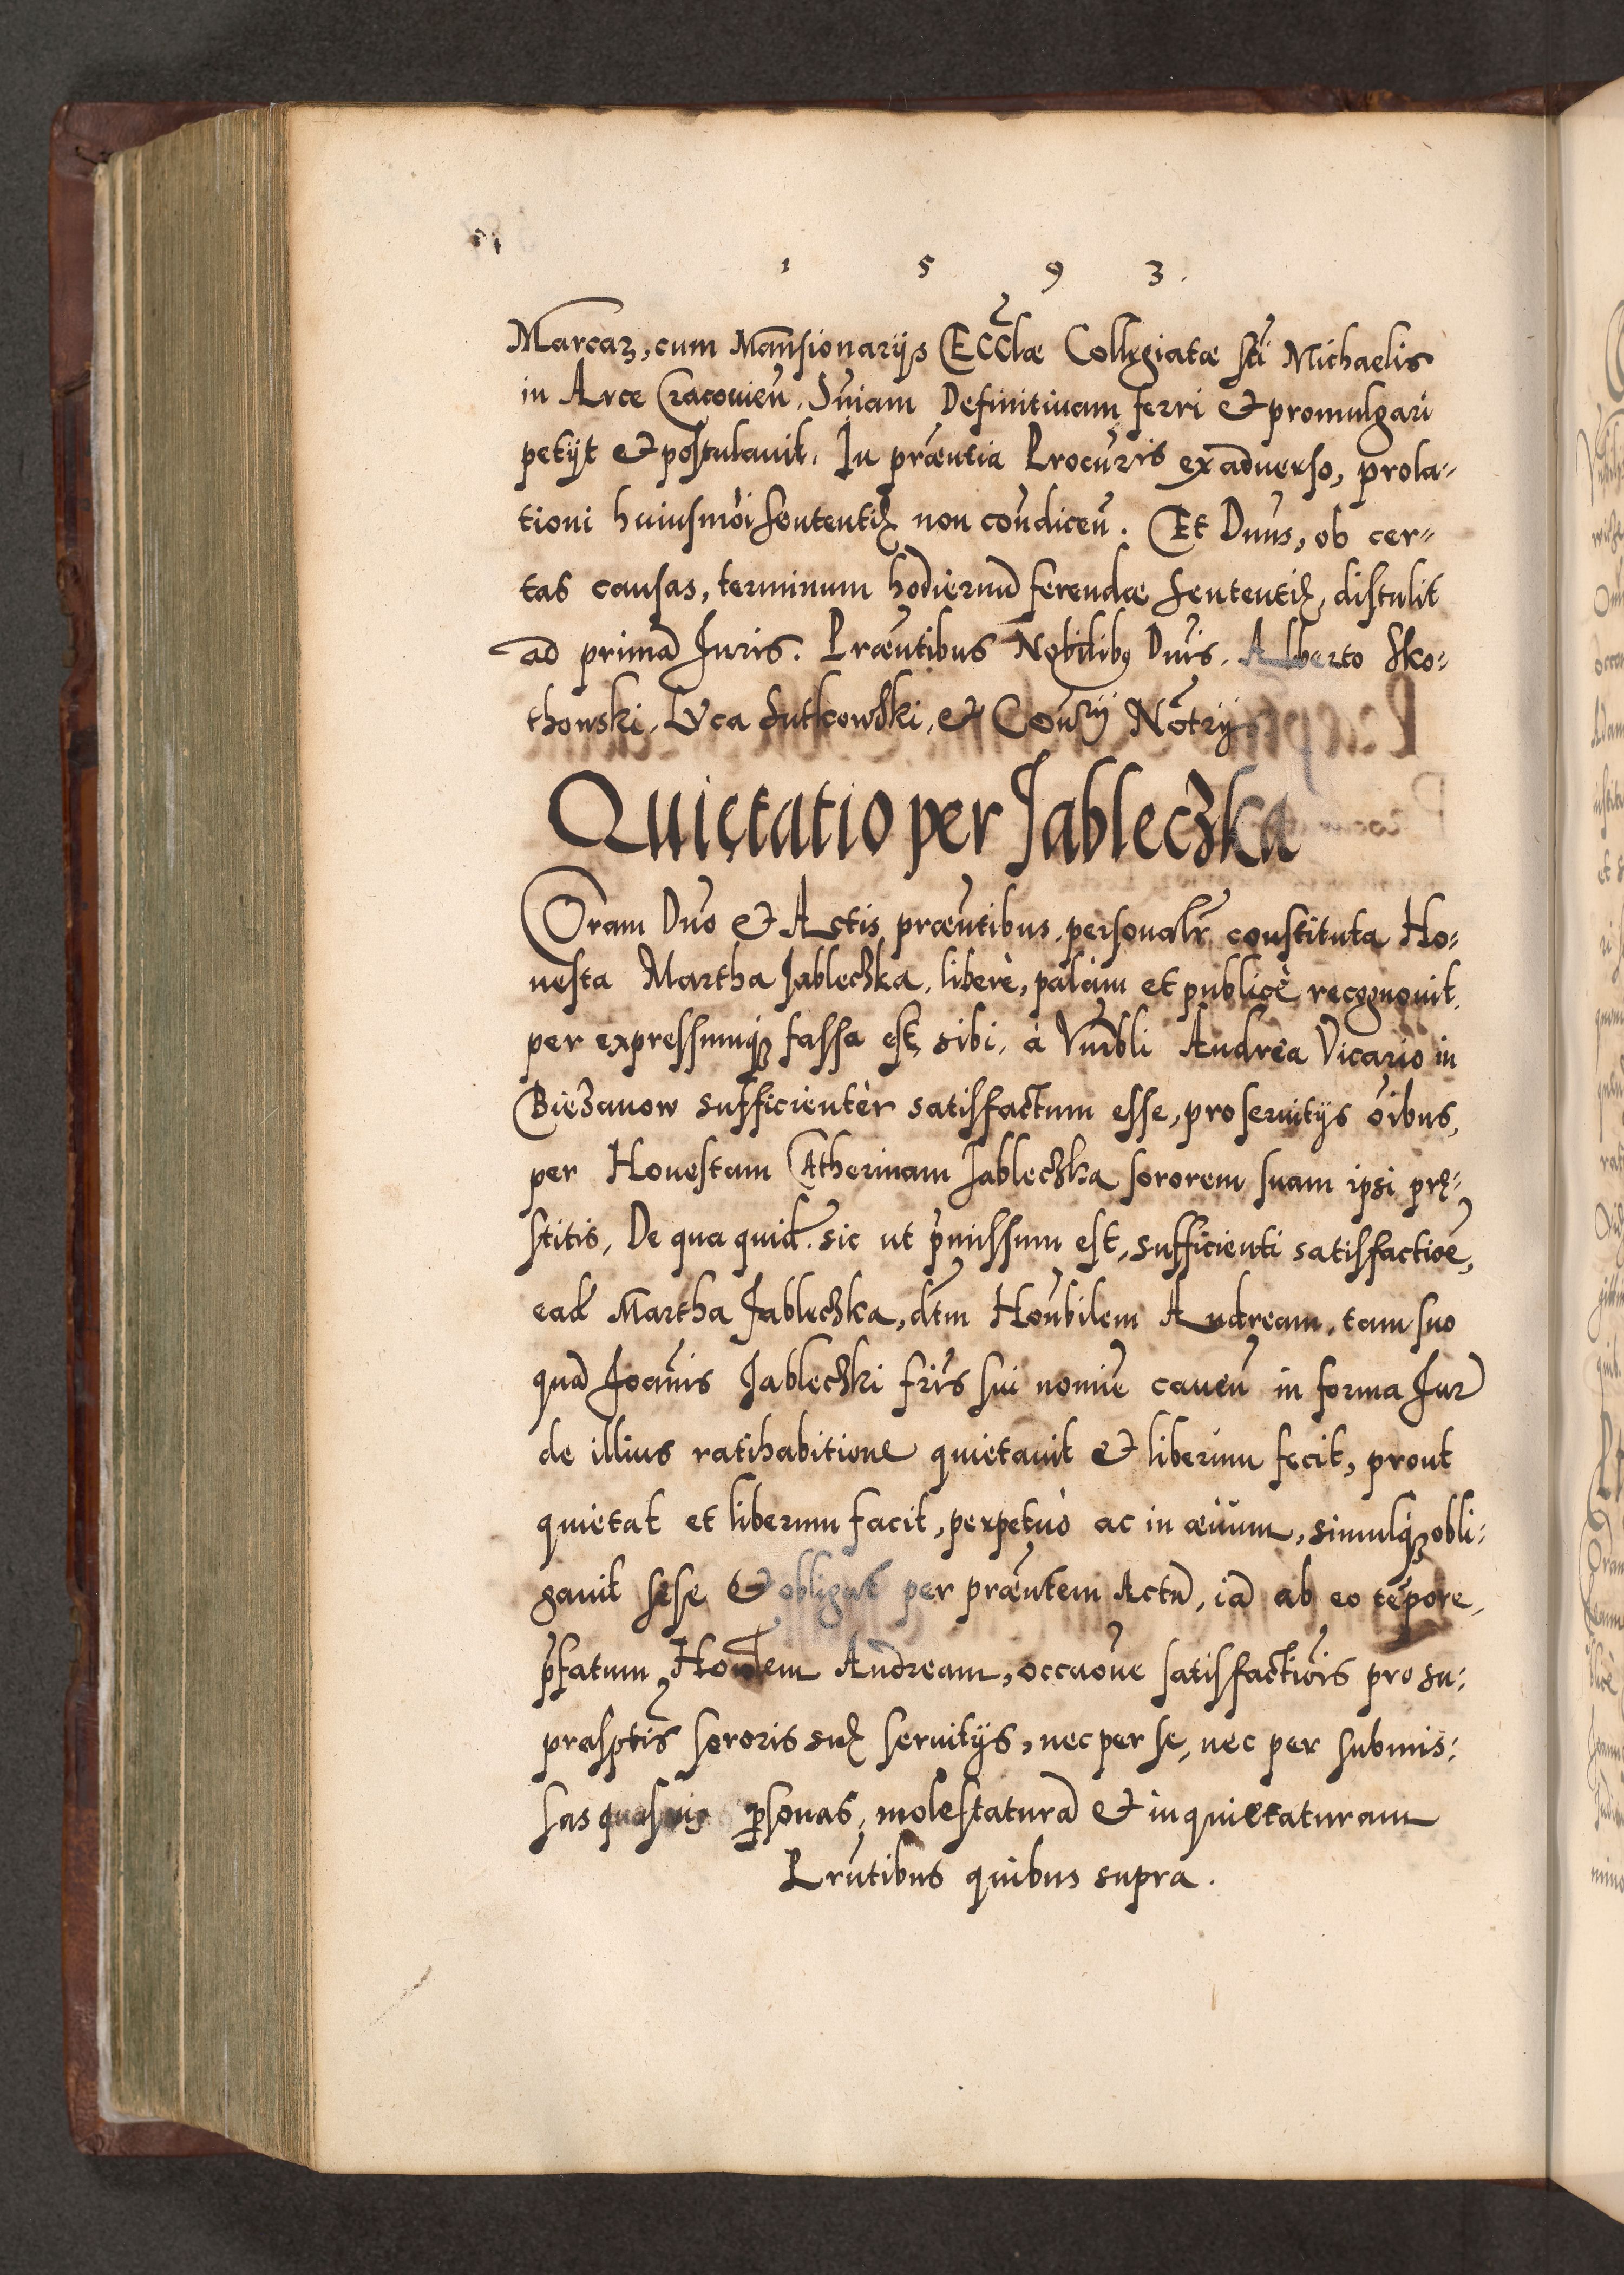 1 5 9 3.
Marcaz, cum Mansionarijs Ecclæ Collegiatæ Sti Michaelis
in Arce Cracouien. Sniam Definitiuam ferri & promulgari
petijt & postulauit. In præntia Procuris ex aduerso, prola-
tioni huiusmoi sententię non condicen. Et Dnus, ob cer-
tas causas, terminum hodiernū ferendæ Sententię, distulit
ad primā Juris. Præntibus Nobilibus Dnis. Alberto Sko-
thowski, Lvca Sutkowski, & Consrij Notrij
Quietatio per Jableczka
Coram Dno & Actis præntibus personalr constituta Ho-
nesta Martha Jableczka, liberè, palàm et publicè recognouit,
per expressumq; fassa est, sibi, à Vnrbli Andrea Vicario in
Biezanow sufficientèr satisfactum esse, pro seruitijs oibus,
per Honestam Catherinam Jableczka sororem suam ipsi prę-
stitis, De qua quid. sic ut pmissum est, sufficienti satisfactioe,
ead Martha Jableczka, dtm Honbilem Andream, tam suo
quā Joānis Jableczki fris sui nomine cauen in forma Jur
de illius ratihabitione quietauit & liberum fecit, prout
quietat et liberum facit, perpetuò ac in æuum, simulq; obli-
gauit sese & obligat per præntem Actū, iā ab eo tēpore,
pfatum Honlem Andream, occaoue satisfactiois pro su-
prasptis sororis suę seruitijs, nec per se, nec per submis-
sas quasuis psonas, molestaturā & inquietaturam
Prntibus quibus supra.